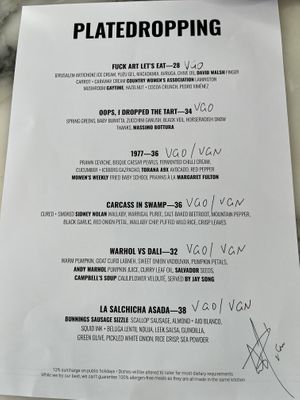 PLATEDROPPING
FUCK ART LET'S EAT—28 VGO
JERUSALEM ARTICHOKE ICE CREAM, YUZU GEL, MACADAMIA, AVRUGA, CHIVE OIL, DAVID WALSH FINGER
CARROT + CARAWAY CREAM COUNTRY WOMEN'S ASSOCIATION LAMINGTON
MUSHROOM GAYTIME, HAZELNUT + COCOA CRUNCH, PEDRO XIMINEZ
OOPS, I DROPPED THE TART—34 VGO
SPRING GREENS, BABY BURATTA, ZUCCHINI GANUSH, BLACK VEIL, HORSERADISH SNOW
THANKS, MASSIMO BOTTURA
1977—36 VGO/VGN
PRAWN CEVICHE, BISQUE CAESAR PEARLS, FERMENTED CHILLI CREAM,
CUCUMBER + ICEBERG GAZPACHO, TORANA A9X, AVOCADO, RED PEPPER
WOMEN'S WEEKLY FRIED BABY SCHOOL PRAWNS À LA MARGARET FULTON
CARCASS IN SWAMP—36 VGO/VGN
CURED + SMOKED SIDNEY NOLAN WALLABY, WARRIGAL PUREE, SALT BAKED BEETROOT, MOUNTAIN PEPPER,
BLACK GARLIC, RED ONION PETAL, WALLABY CHIP, PUFFED WILD RICE, CRISP LEAVES
WARHOL VS DALI—32 VGO/VGN
WARM PUMPKIN, GOAT CURD LABNEH, SWEET ONION VADOUVAN, PUMPKIN PETALS,
ANDY WARHOL PUMPKIN JUICE, CURRY LEAF OIL, SALVADOR SEEDS,
CAMPBELL'S SOUP CAULIFLOWER VELOUTÉ, SERVED BY JAY SONG
LA SALCHICHA ASADA—38 VGO/VGN
BUNNINGS SAUSAGE SIZZLE: SCALLOP SAUSAGE, ALMOND + AJO BLANCO,
SQUID INK + BELUGA LENTIL, NDUJA, LEEK SALSA, GUINDILLA,
GREEN OLIVE, PICKLED WHITE ONION, RICE CRISP, SEA POWDER
10% surcharge on public holidays • Dishes will be altered to cater for most dietary requirements
While we try our best, we can't guarantee 100% allergen-free meals as they are all made in the same kitchen
VGO